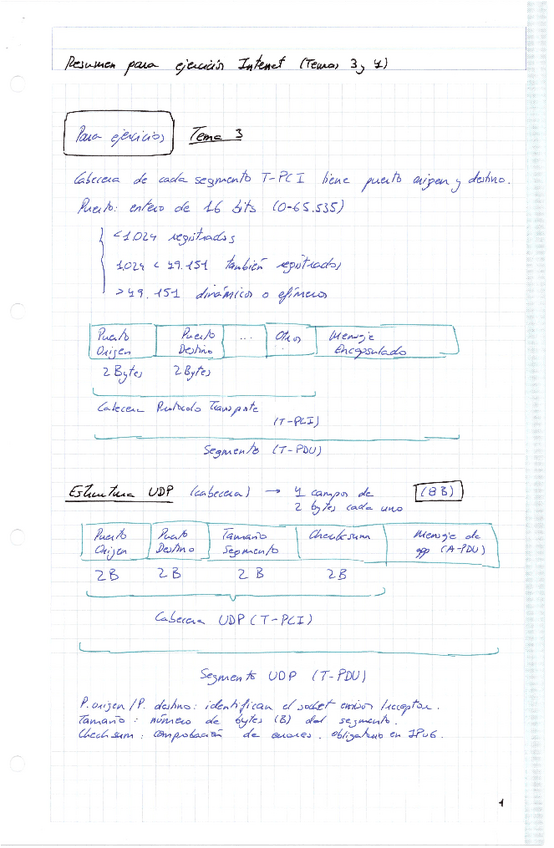 Resumen para ejercicios Internet (Temas 3 y 4)
Para ejercicios Tema 3
Cabecera de cada segmento T-PCI tiene puerto origen y destino.
Puerto: entero de 16 bits (0-65.535)
<1.024 registrados
1.024 < 49.151 también registrados
>49.151 dinámicos o efímeros
Puerto Origen Puerto Destino ... Otros Mensaje Encapsulado
2 Bytes 2 Bytes
Cabecera Protocolo Transporte
(T-PCI)
Segmento (T-PDU)
Estructura UDP (cabecera) → 4 campos de (8B)
2 bytes cada uno
Puerto Origen Puerto Destino Tamaño Segmento Checksum Mensaje de app (A-PDU)
2B 2B 2B 2B
Cabecera UDP (T-PCI)
Segmento UDP (T-PDU)
P. origen / P. destino: identifican el socket emisor/receptor.
Tamaño: número de bytes (B) del segmento.
Checksum: comprobación de errores. obligatorio en IPv6.
1